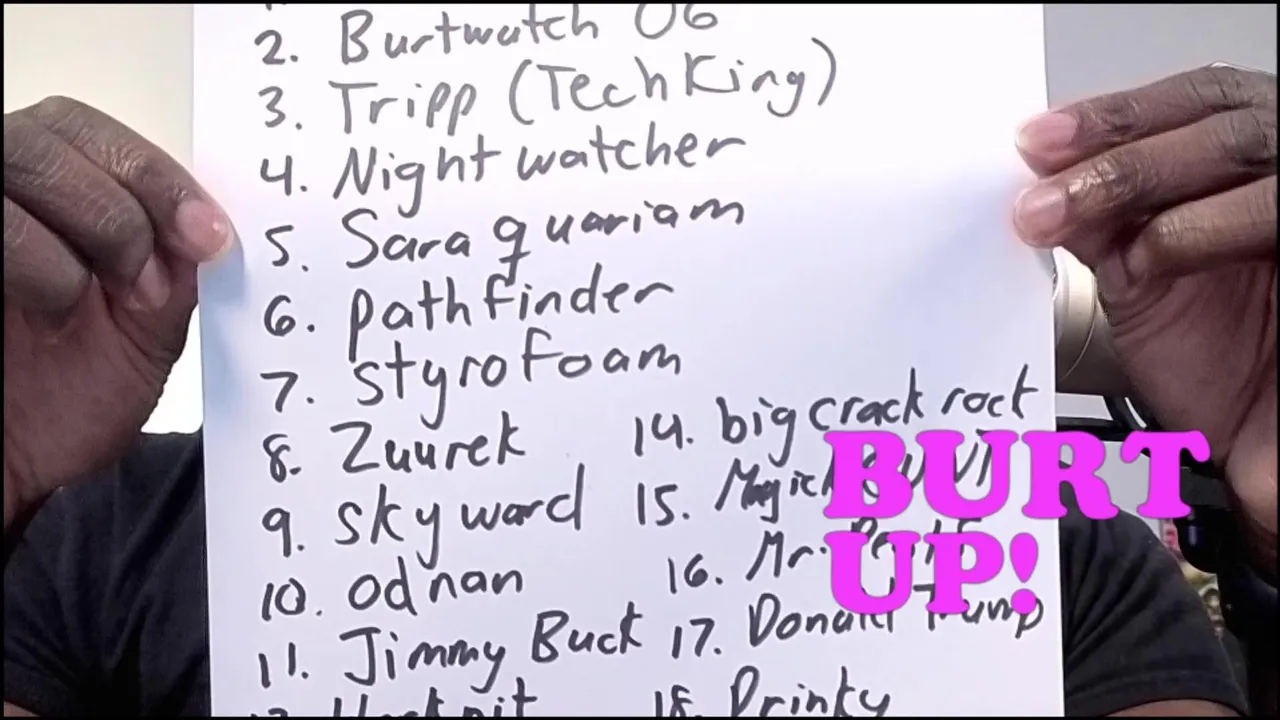 2. Burtwatch 06
3. Tripp (TechKing)
4. Nightwatcher
5. Saraquariam
6. pathfinder
7. styrofoam
8. Zuurek
9. skyward
10. odnan
11. Jimmy Buck
14. big crack rock
15.
16. Mr.
17. Donald Trump
18. Drinky
BURT
UP!